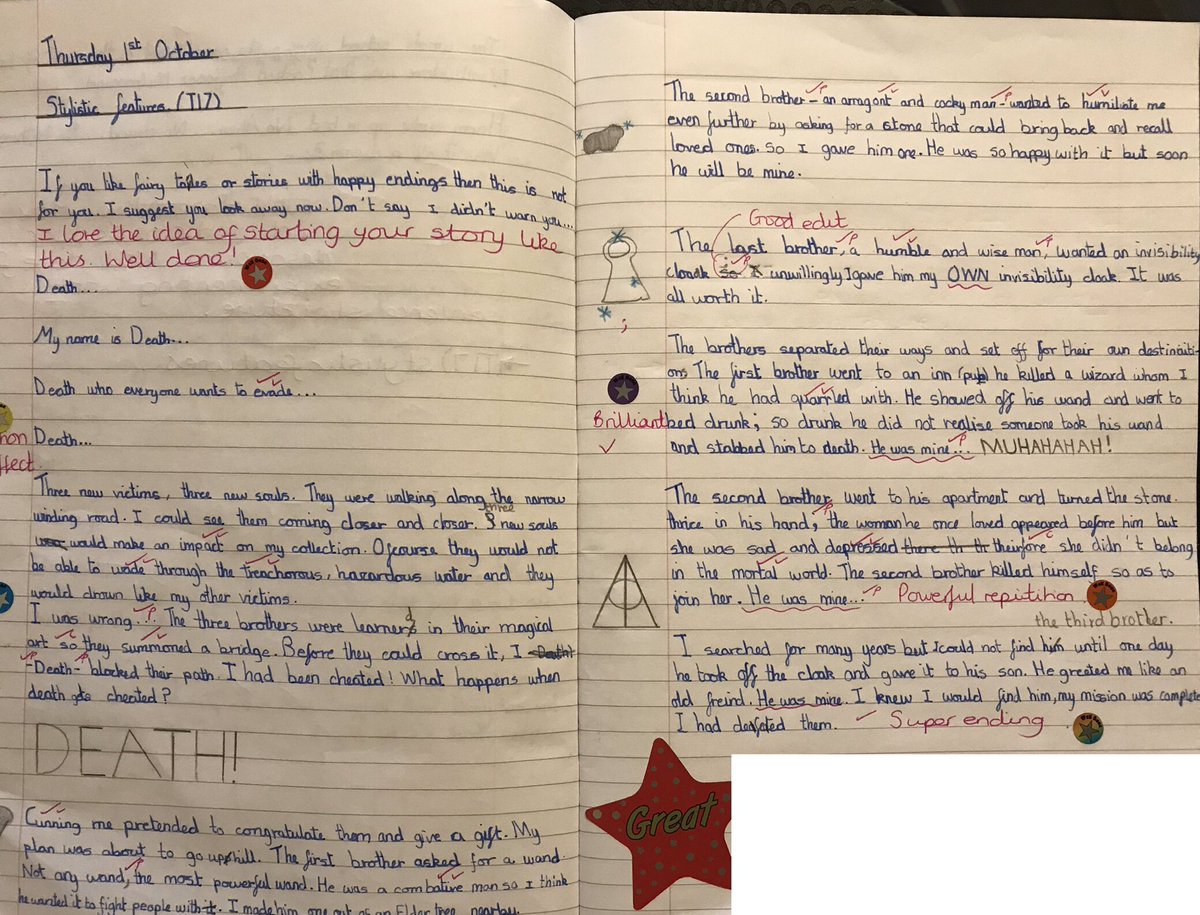 Thursday 1st October
Stylistic features (T17)
If you like fairy tales or stories with happy endings then this is not
for you. I suggest you look away now. Don't say I didn't warn you...
I love the idea of starting your story like
this. Well done!
Death...
My name is Death...
Death who everyone wants to evade...
Death...
Three new victims, three new souls. They were walking along the narrow
winding road. I could see them coming closer and closer. three new souls
would make an impact on my collection. Ofcourse they would not
be able to wade through the trenchorous, hazardous water and they
would drown like my other victims.
I was wrong... The three brothers were learned in their magical
art so they summoned a bridge. Before they could cross it, I
-Death- blocked their path. I had been cheated! What happens when
death gets cheated?
DEATH!
Cunning me pretended to congratulate them and give a gift. My
plan was about to go uphill. The first brother asked for a wand.
Not any wand, the most powerful wand. He was a combative man so I think
he wanted it to fight people with it. I made him one out of an Elder tree nearby.
The second brother - an arragont and cocky man - wanted to humiliate me
even further by asking for a stone that could bring back and recall
loved ones. So I gave him one. He was so happy with it but soon
he will be mine.
Good edit
The last brother, a humble and wise man, wanted an invisibility
cloak so I unwillingly I gave him my OWN invisibility cloak. It was
all worth it.
;
The brothers separated their ways and set off for their own destinaiti-
ons The first brother went to an inn (pub) he killed a wizard whom I
think he had quarrled with. He showed off his wand and went to
Brilliant bed drunk; so drunk he did not realise someone took his wand
and stabbed him to death. He was mine... MUHAHAHAH!
The second brother went to his apartment and turned the stone
thrice in his hand, the woman he once loved appeared before him but
she was sad and depressed there th th theirfore she didn't belong
in the mortal world. The second brother killed himself so as to
join her. He was mine... Powerful repitition.
the third brother.
I searched for many years but I could not find him until one day
he took off the cloak and gave it to his son. He greated me like an
old freind. He was mine. I knew I would find him, my mission was complete
I had defeated them. Super ending
Great